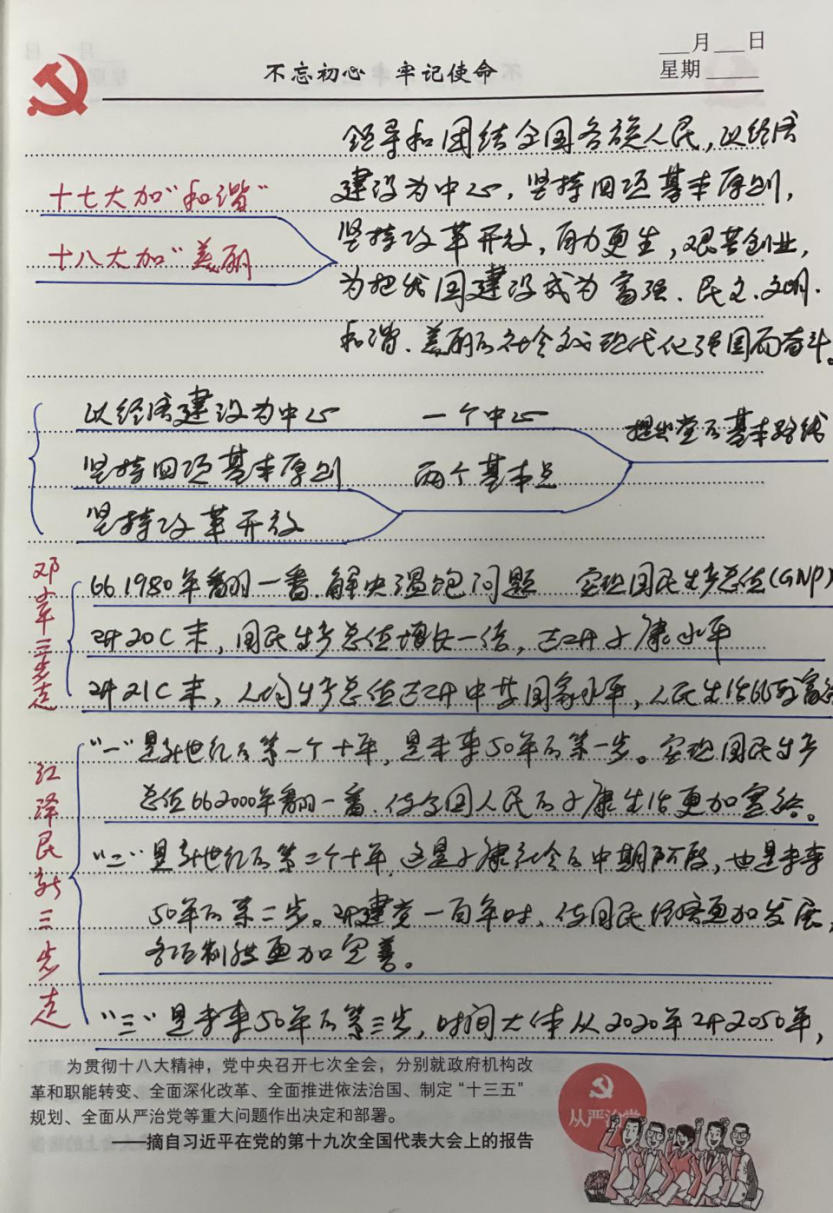 ___月___日
不忘初心 牢记使命
星期_____
领导和团结全国各族人民，以经济
十七大加"和谐"
建设为中心，坚持四项基本原则，
十八大加"美丽
坚持改革开放，自力更生，艰苦创业，
为把我国建设成为富强、民主、文明、
和谐、美丽的社会主义现代化强国而奋斗。
以经济建设为中心 一个中心
提出党的基本路线
坚持四项基本原则 两个基本点
坚持改革开放
邓小平三步走
比1980年翻一番、解决温饱问题 实现国民生产总值(GNP)
到20C末，国民生产总值增长一倍，达到小康水平
到21C末，人均生产总值达到中等国家水平，人民生活比较富裕
江泽民新三步走
"一"是新世纪的第一个十年，是未来50年的第一步。实现国民生产
总值比2000年翻一番、使全国人民的小康生活更加富裕。
"二"是新世纪的第二个十年，这是小康社会的中期阶段，也是未来
50年的第二步。到建党一百年时、使国民经济更加发展，
各项制度更加完善。
"三"是未来50年的第三步，时间大体从2020年到2050年，
为贯彻十八大精神，党中央召开七次全会，分别就政府机构改
革和职能转变、全面深化改革、全面推进依法治国、制定"十三五"
规划、全面从严治党等重大问题作出决定和部署。
——摘自习近平在党的第十九次全国代表大会上的报告
从严治党